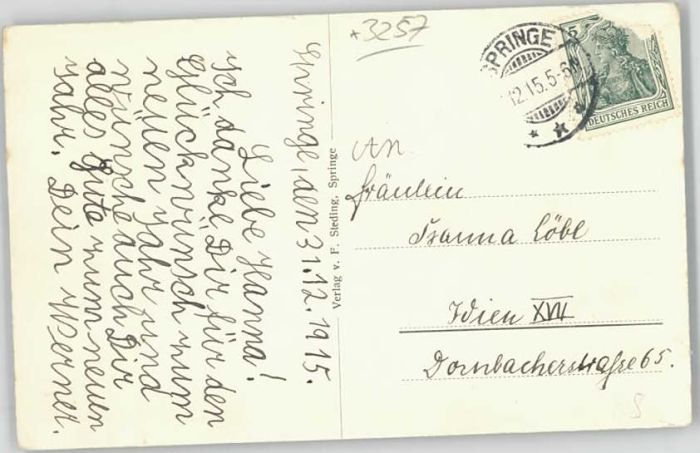 *3257
SPRINGE
12.15.5-6N
5
DEUTSCHES REICH
Springe, den 31.12.1915.
Liebe Hanna!
Ich danke Dir für den
Glückwünsch zum
neuen Jahr und
wünsche auch Dir
alles Gute zum neuen
Jahr. Dein Werner.
Verlag v. F. Steding, Springe
An
Fräulein
Hanna Löbl
Wien XVII
Dornbacherstraße 65.